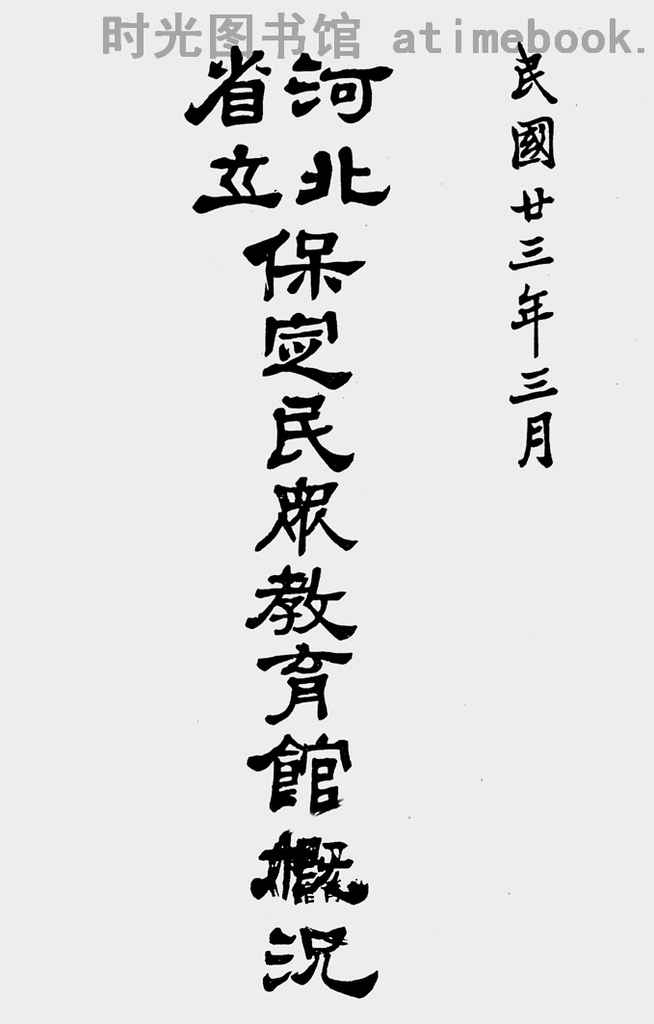 时光图书馆 atimebook.
民國廿三年三月
河北
省立
保定民眾教育館概況